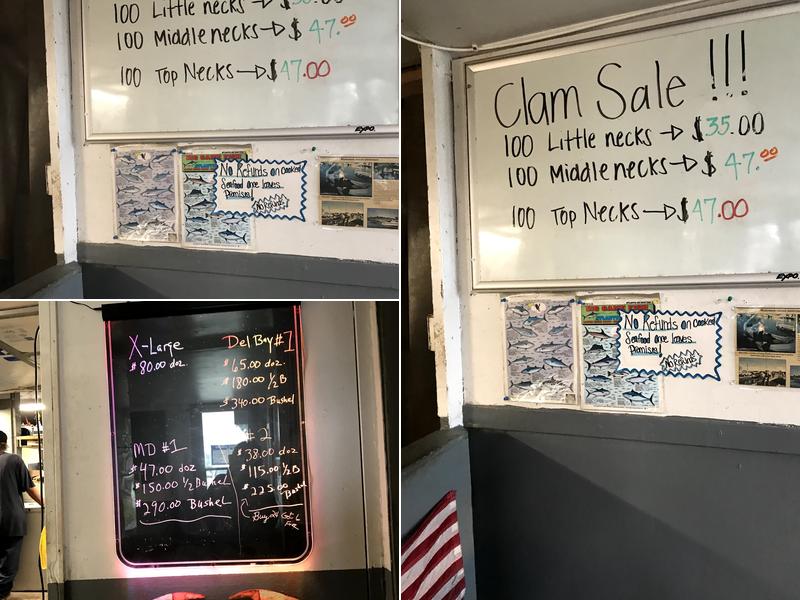 100 Little necks →
100 Middle necks → $ 47.00
100 Top Necks → $47.00
EXPO
No Refunds on cooked
Seafood once leaves
Premises!
No Refunds
Clam Sale !!!
100 Little necks → $35.00
100 Middle necks → $ 47.00
100 Top Necks → $47.00
EXPO
No Refunds on cooked
Seafood once leaves
Premises!
No Refunds
X-Large
$80.00 doz.
Del Bay #1
$65.00 doz.
$180.00 1/2 B
$340.00 Bushel
MD #1
$47.00 doz
$150.00 1/2 Bushel
$290.00 Bushel
#2
$38.00 doz
$115.00 1/2 B
$225.00 Bushel
Get 6
Free